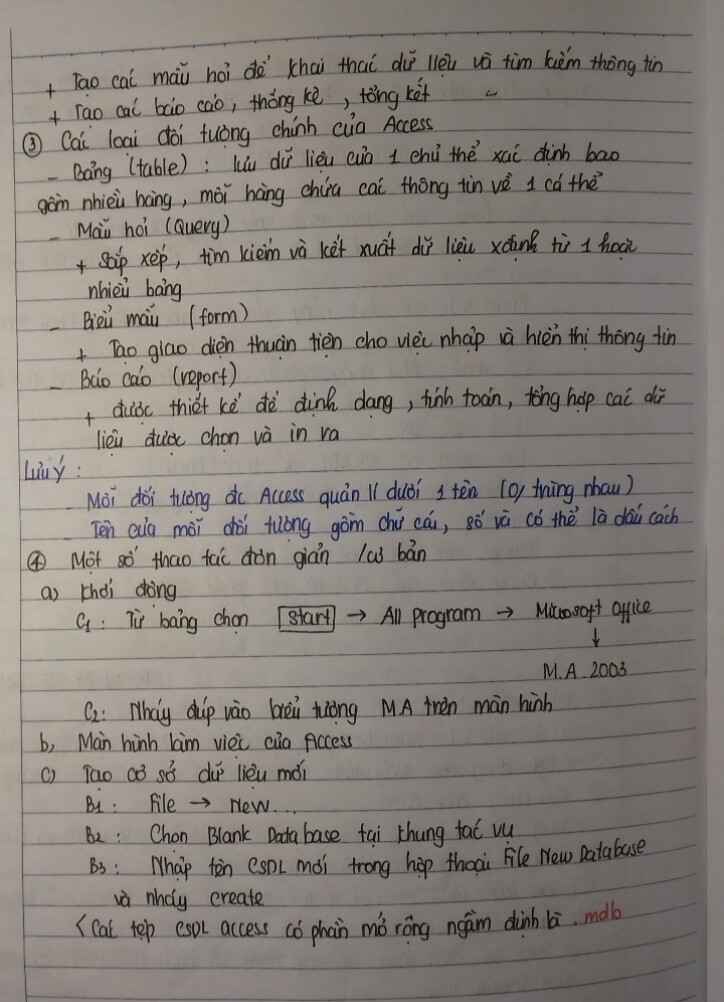 + Tạo các mẫu hỏi để khai thác dữ liệu và tìm kiếm thông tin
+ Tạo các báo cáo, thống kê, tổng kết
③ Các loại đối tượng chính của Access
- Bảng (table) : lưu dữ liệu của 1 chủ thể xác định bao
gồm nhiều hàng, mỗi hàng chứa các thông tin về 1 cá thể
- Mẫu hỏi (Query)
+ Sắp xếp, tìm kiếm và kết xuất dữ liệu xđịnh từ 1 hoặc
nhiều bảng
- Biểu mẫu (form)
+ Tạo giao diện thuận tiện cho việc nhập và hiển thị thông tin
- Báo cáo (report)
+ được thiết kế để định dạng, tính toán, tổng hợp các dữ
liệu được chọn và in ra
Lưu ý :
- Mỗi đối tượng đc Access quản lí dưới 1 tên (0/ trùng nhau)
- Tên của mỗi đối tượng gồm chữ cái, số và có thể là dấu cách
④ Một số thao tác đơn giản / cơ bản
a) Khởi động
C1 : Từ bảng chọn Start → All program → Microsoft Office
↓
M.A 2003
C2: Nháy đúp vào biểu tượng MA trên màn hình
b, Màn hình làm việc của Access
c) Tạo cơ sở dữ liệu mới
B1 : File → New...
B2 : Chọn Blank Database tại khung tác vụ
B3 : Nhập tên CSDL mới trong hộp thoại File New Database
và nháy create
< Các tệp CSDL access có phần mở rộng ngầm định là .mdb